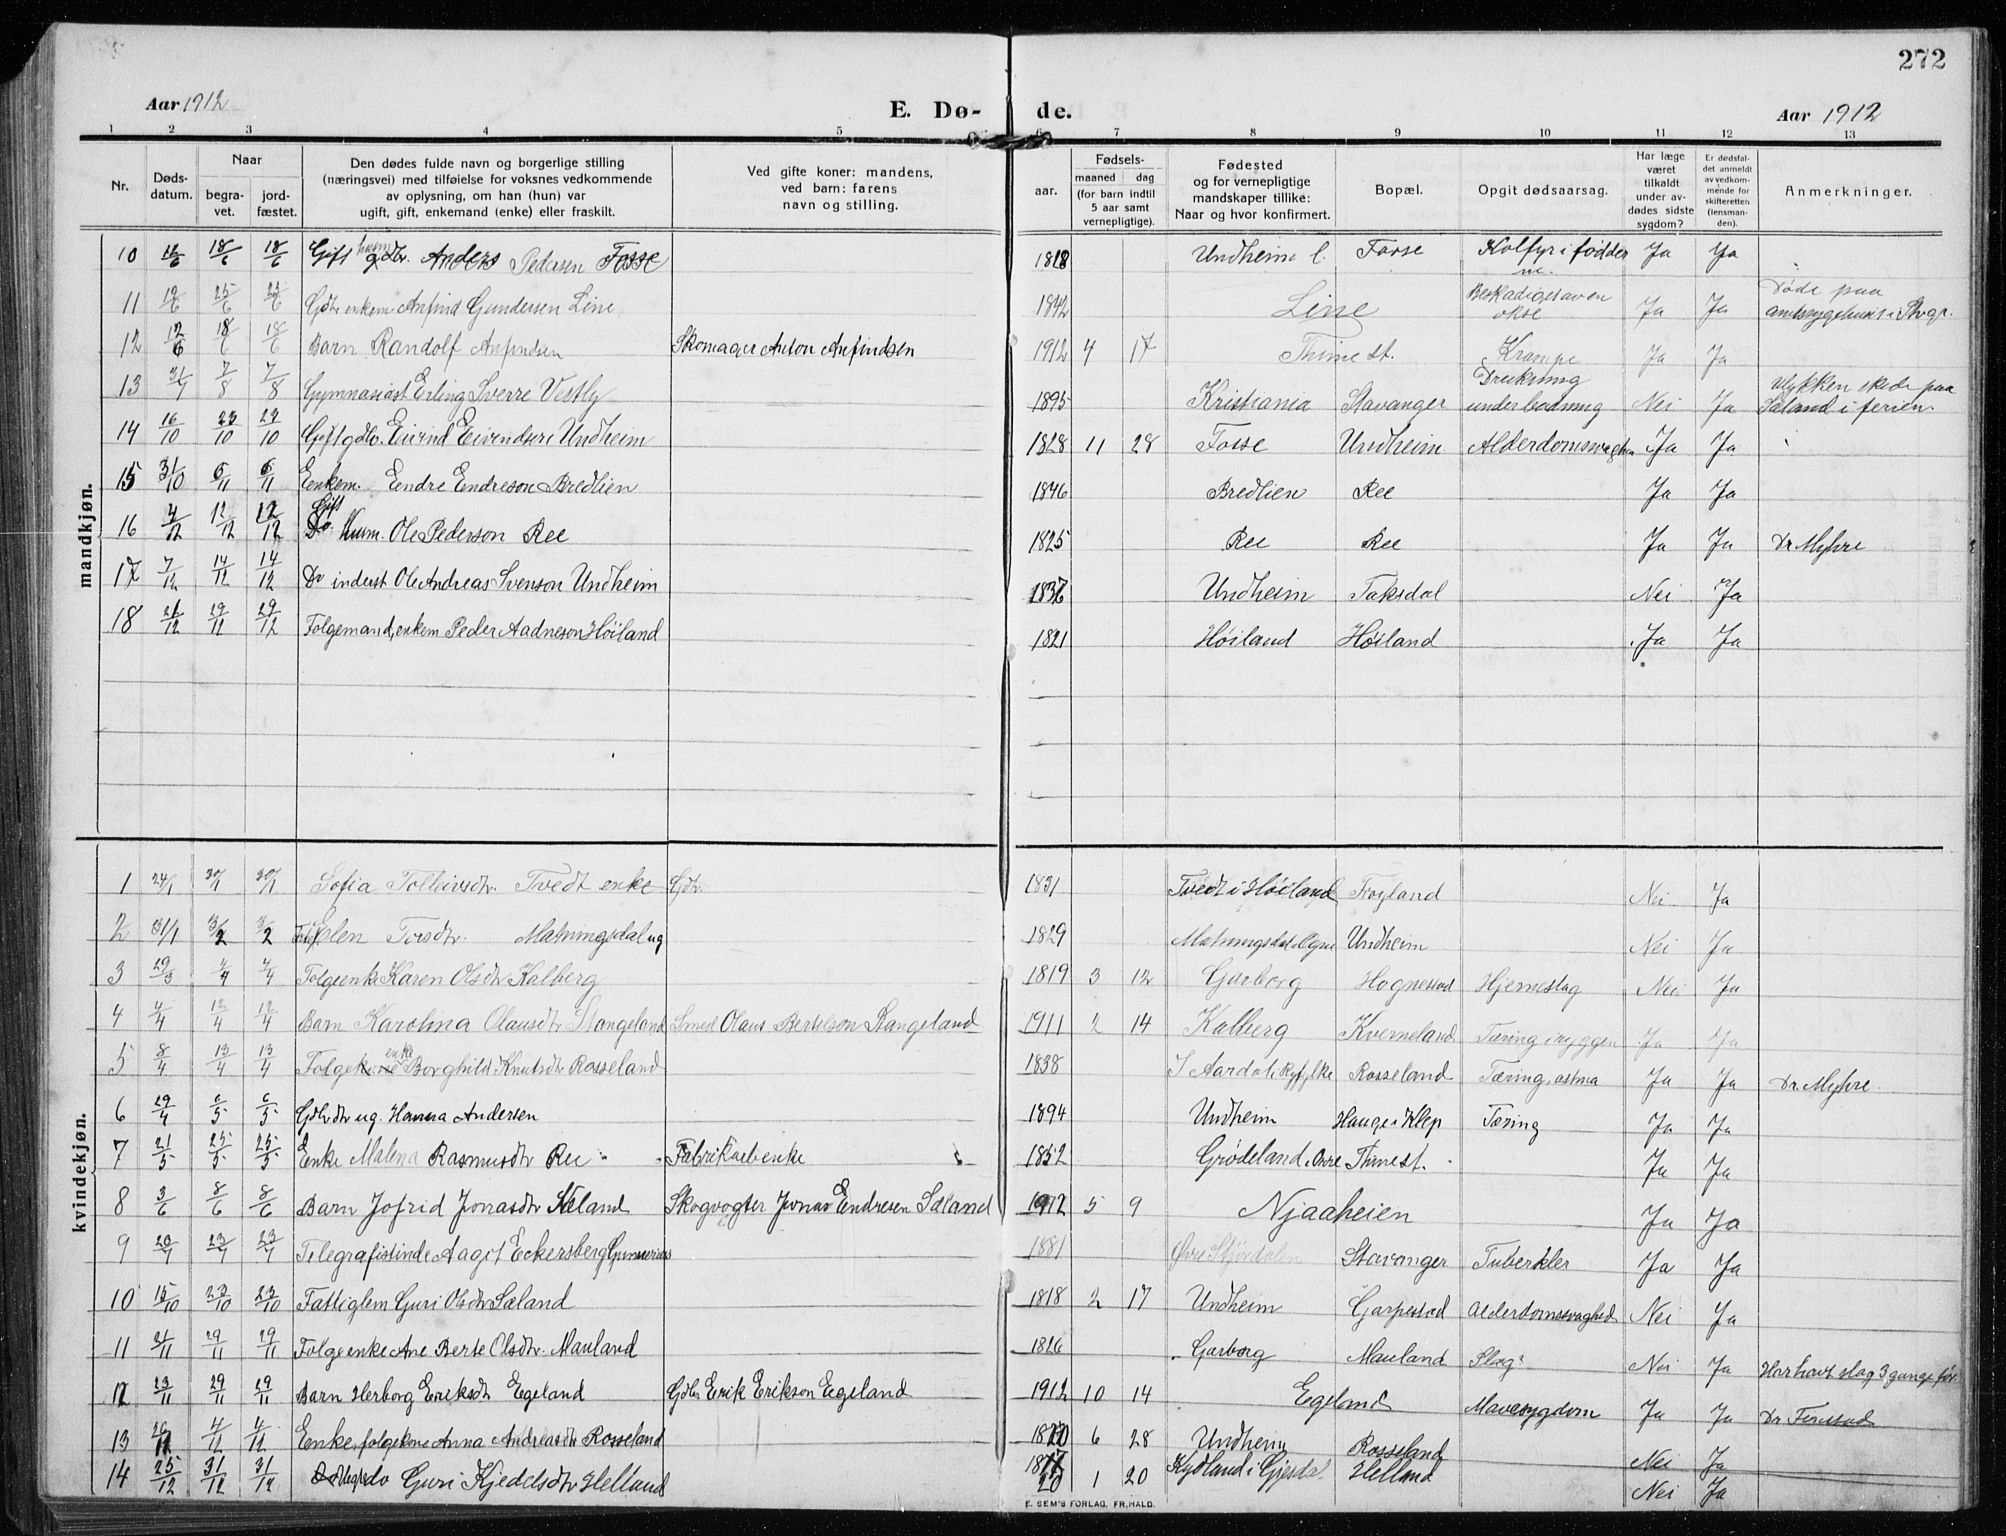 272
Aar 1912 E. Dø- de. Aar 1912
1 2 3 4 5 6 7 8 9 10 11 12 13
Nr. Døds-datum. Naar begra-vet. jord-fæstet. Den dødes fulde navn og borgerlige stilling (næringsvei) med tilføielse for voksnes vedkommende av oplysning, om han (hun) var ugift, gift, enkemand (enke) eller fraskilt. Ved gifte koner: mandens, ved barn: farens navn og stilling. aar. Fødsels- maaned dag (for barn indtil 5 aar samt vernepligtige). Fødested og for vernepligtige mandskaper tillike: Naar og hvor konfirmert. Bopæl. Opgit dødsaarsag. Har læge været tilkaldt under av-dødes sidste sygdom? Er dødsfal-det anmeldt av vedkom-mende for skifteretten (lensman-den). Anmerkninger.
mandkjøn.
10 18/6 18/6 Gift Anders Pedersen Fosse 1818 Undheim Fosse Kolfyr i fødderne. Ja Ja
11 19/6 25/6 25/6 Gdbr enkem. Anfind Gundersen Line 1842 Line Beskadiget av en okse Ja Ja Døde paa
12 12/6 18/6 18/6 Barn Randolf Anfindsen Skomager Anton Anfindsen 1912 4 17 Thime st. Krampe Ja Ja
13 31/7 7/8 7/8 Gymnasiast Erling Sverre Vestly 1895 Kristiania Stavanger Drukning under badning Nei Ja Ulykken skede paa Sæland i ferien.
14 16/10 23/10 23/10 Gift gdbr. Eivind Eivendsen Undheim 1828 11 28 Fosse Undheim Ja Ja
15 31/10 6/11 6/11 Enkem. Endre Endreson Bredlien 1846 Bredlien Ree Ja Ja
16 4/12 12/12 12/12 Gift kaarm. Ole Pederson Ree 1825 Ree Ree Ja Ja Dr Myhre
17 7/12 14/12 14/12 Do inderst Ole Andreas Svenson Undheim 1836 Undheim Taksdal Nei Ja
18 21/12 29/12 29/12 Folgemand, enkem Peder Aadneson Høiland 1821 Høiland Høiland Ja Ja
kvindekjøn.
1 24/1 30/1 30/1 Sofia Tolleivsdtr. Tvedt enke Gdbr. 1831 Tvedt i Høiland Frøyland Nei Ja
2 31/1 3/2 3/2 Elen Torsdtr. Matningsdal ug 1829 Matningsdal i Ogne Undheim Nei Ja
3 29/3 4/4 4/4 Folgeenke Karen Olsdtr Kalberg 1819 3 12 Garborg Hognestad Hjerneslag Nei Ja
4 4/4 12/4 12/4 Barn Karolina Olausdtr Stangeland Smed Olaus Bertelson Stangeland 1911 2 14 Kalberg Kverneland Tæring i ryggen Ja Ja
5 8/4 13/4 13/4 Folgeenke Borghild Knutsdtr Rosseland 1838 I Aardal i Ryfylke Rosseland Tæring, astma Ja Ja Dr. Myhre
6 29/4 6/5 6/5 Gdbrdtr ug. Hanna Andersen 1894 Undheim Hauge i Klep Tæring Ja Ja
7 21/5 25/5 25/5 Enke Malena Rasmusdtr Ree Fabrikarb enke 1852 Grødeland i Thimest. Ja Ja
8 3/6 8/6 8/6 Barn Jofrid Jonasdtr Sæland Skogvogter Jonas Endresen Sæland 1912 5 9 Njaaheien Ja Ja
9 20/7 23/7 23/7 Telegrafistinde Aagot Eckersberg Gunnerius 1881 Øvre Stjørdalen Stavanger Tuberkler Ja Ja
10 15/10 23/10 23/10 Fattiglem Guri Olsdtr Sæland 1818 2 17 Undheim Garpestad Alderdomssvaghed Nei Ja
11 21/11 29/11 29/11 Folgeenke Ane Berte Olsdtr. Mauland 1826 Garborg Mauland Slag Nei Ja Har havt slag 3 gange før
12 23/11 29/11 29/11 Barn Herborg Eriksdtr Egeland Gdbr Erik Erikson Egeland 1912 10 14 Egeland Mavesygdom Ja Ja
13 4/12 4/12 Enke, folgekone Anna Andreasdtr Rosseland 6 28 Undheim Rosseland Nei Ja
14 25/12 31/12 31/12 do Guri Kjedelsdtr Helland 20 1 20 Helland Nei Ja
E. SEM'S FORLAG, FR.HALD.